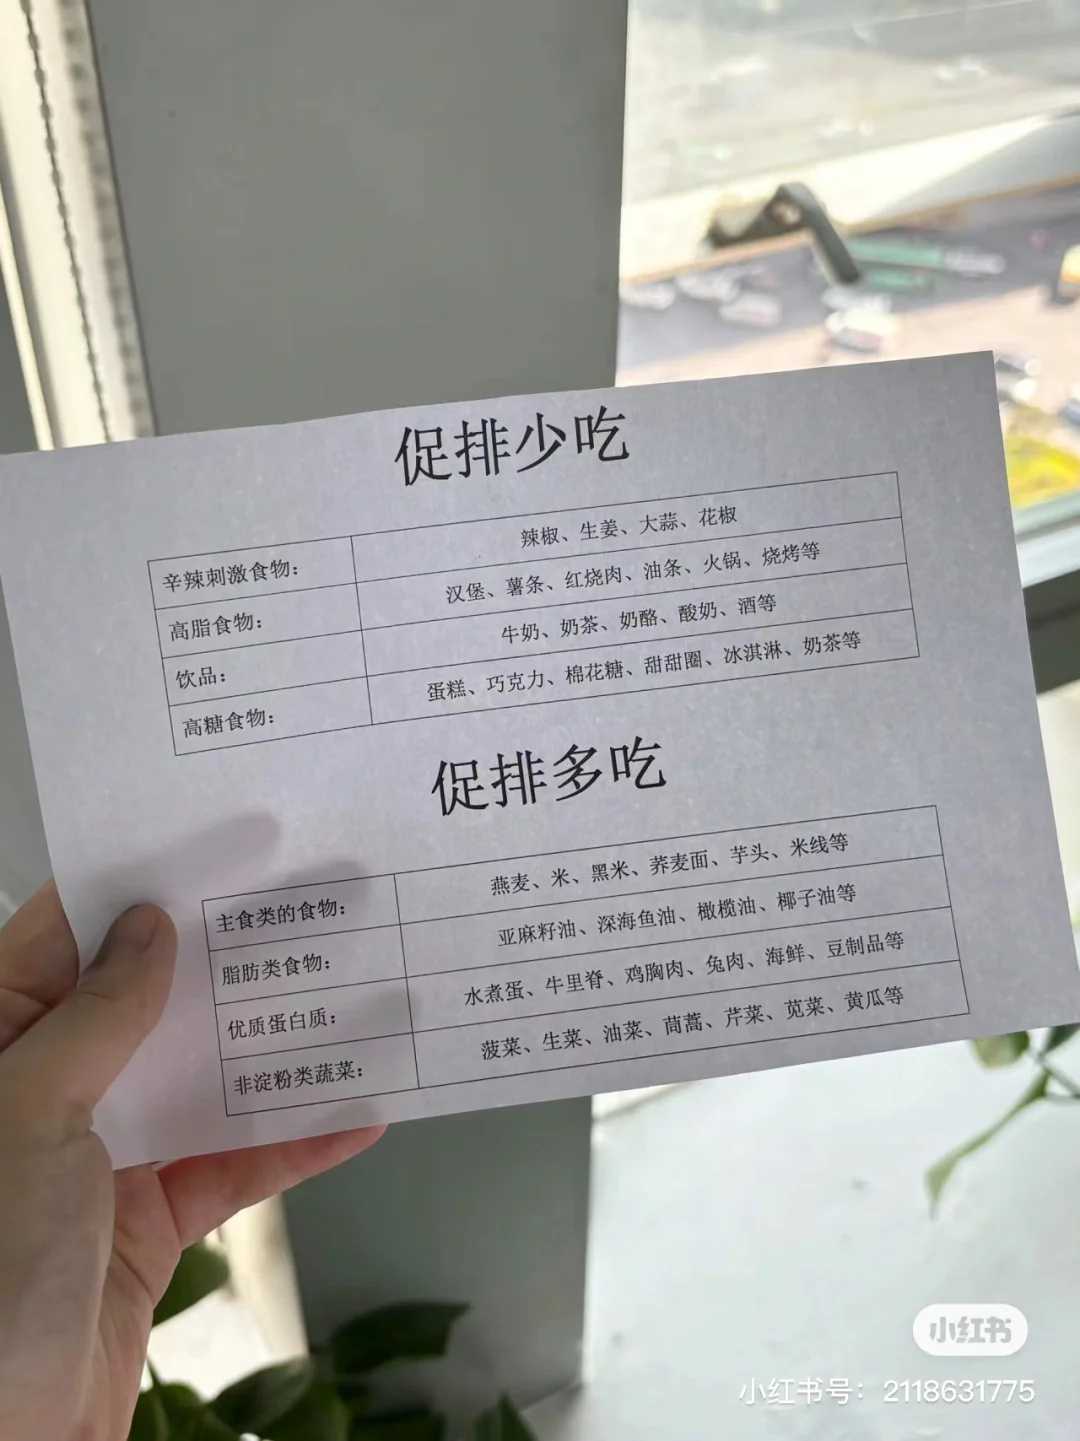 促排少吃
辛辣刺激食物： 辣椒、生姜、大蒜、花椒
高脂食物： 汉堡、薯条、红烧肉、油条、火锅、烧烤等
饮品： 牛奶、奶茶、奶酪、酸奶、酒等
高糖食物： 蛋糕、巧克力、棉花糖、甜甜圈、冰淇淋、奶茶等
促排多吃
主食类的食物： 燕麦、米、黑米、荞麦面、芋头、米线等
脂肪类食物： 亚麻籽油、深海鱼油、橄榄油、椰子油等
优质蛋白质： 水煮蛋、牛里脊、鸡胸肉、兔肉、海鲜、豆制品等
非淀粉类蔬菜： 菠菜、生菜、油菜、茼蒿、芹菜、苋菜、黄瓜等
小红书
小红书号：2118631775